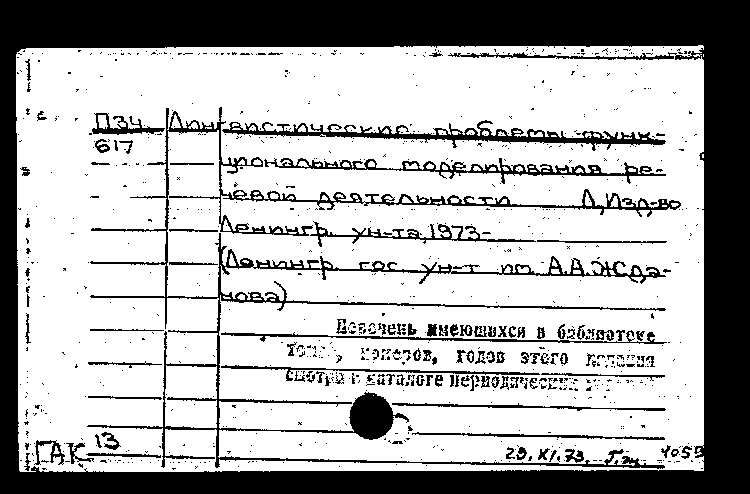 П34 Лингвистические проблемы функ-
617
ционального моделирования ре-
чевой деятельности Л, Изд-во
Ленингр. ун-та, 1973-
(Ленингр. гос. ун-т им А.А.Жда-
нова)
Перечень имеющихся в библиотеке
томов, номеров, годов этого издания
смотри в каталоге периодических
ГАК 13
29.XI.73.